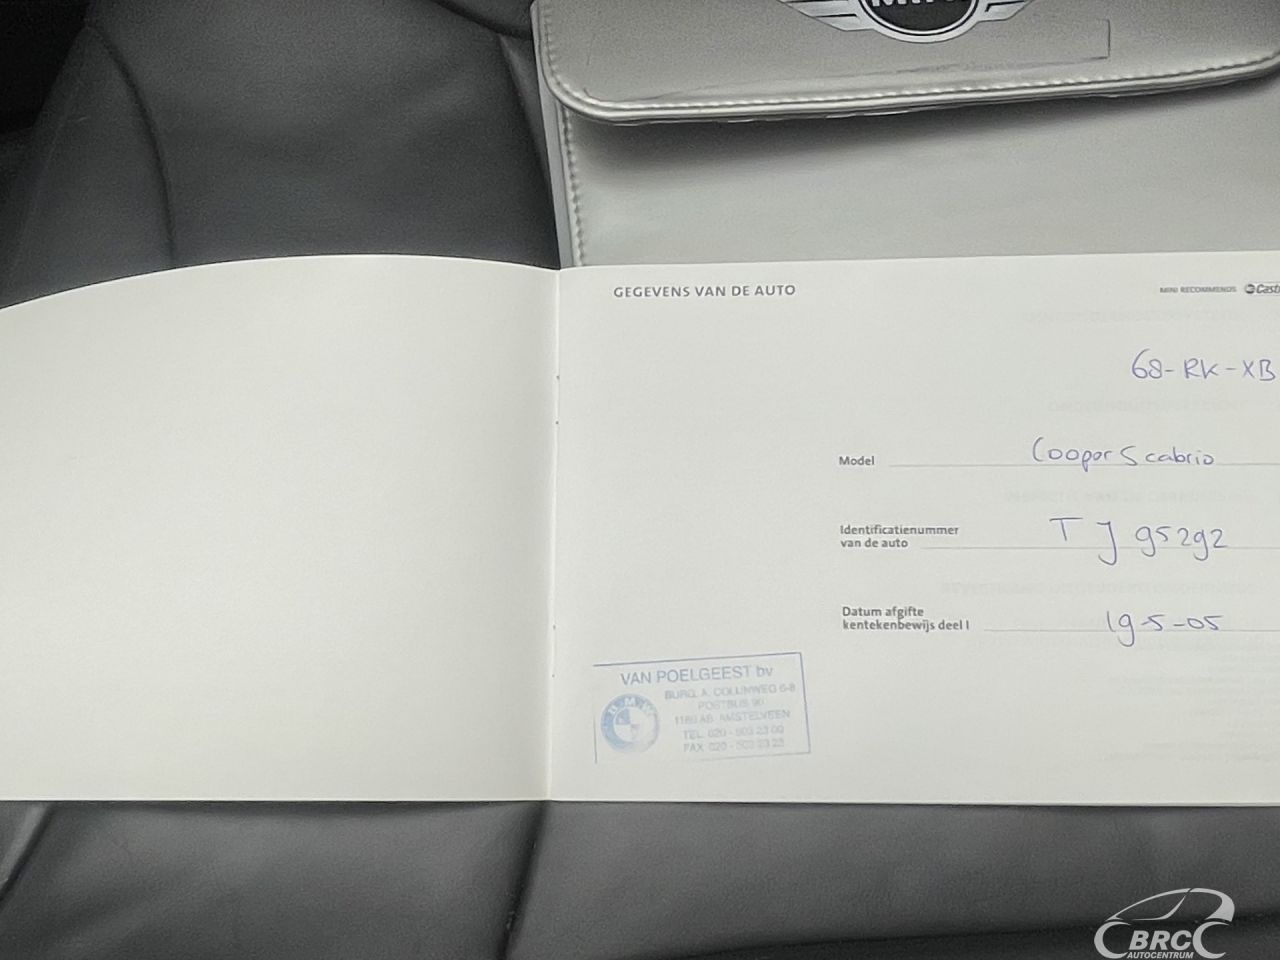 GEGEVENS VAN DE AUTO
MINI RECOMMENDS Castr
68-RK-XB
Model Cooper S cabrio
Identificatienummer
van de auto TJ 95292
Datum afgifte
kentekenbewijs deel I 19-5-05
VAN POELGEEST bv
BURG. A. COLIJNWEG 6-8
POSTBUS 90
1180 AB AMSTELVEEN
TEL. 020 - 503 23 00
FAX 020 - 503 23 23
BMW
BRC
AUTOCENTRUM